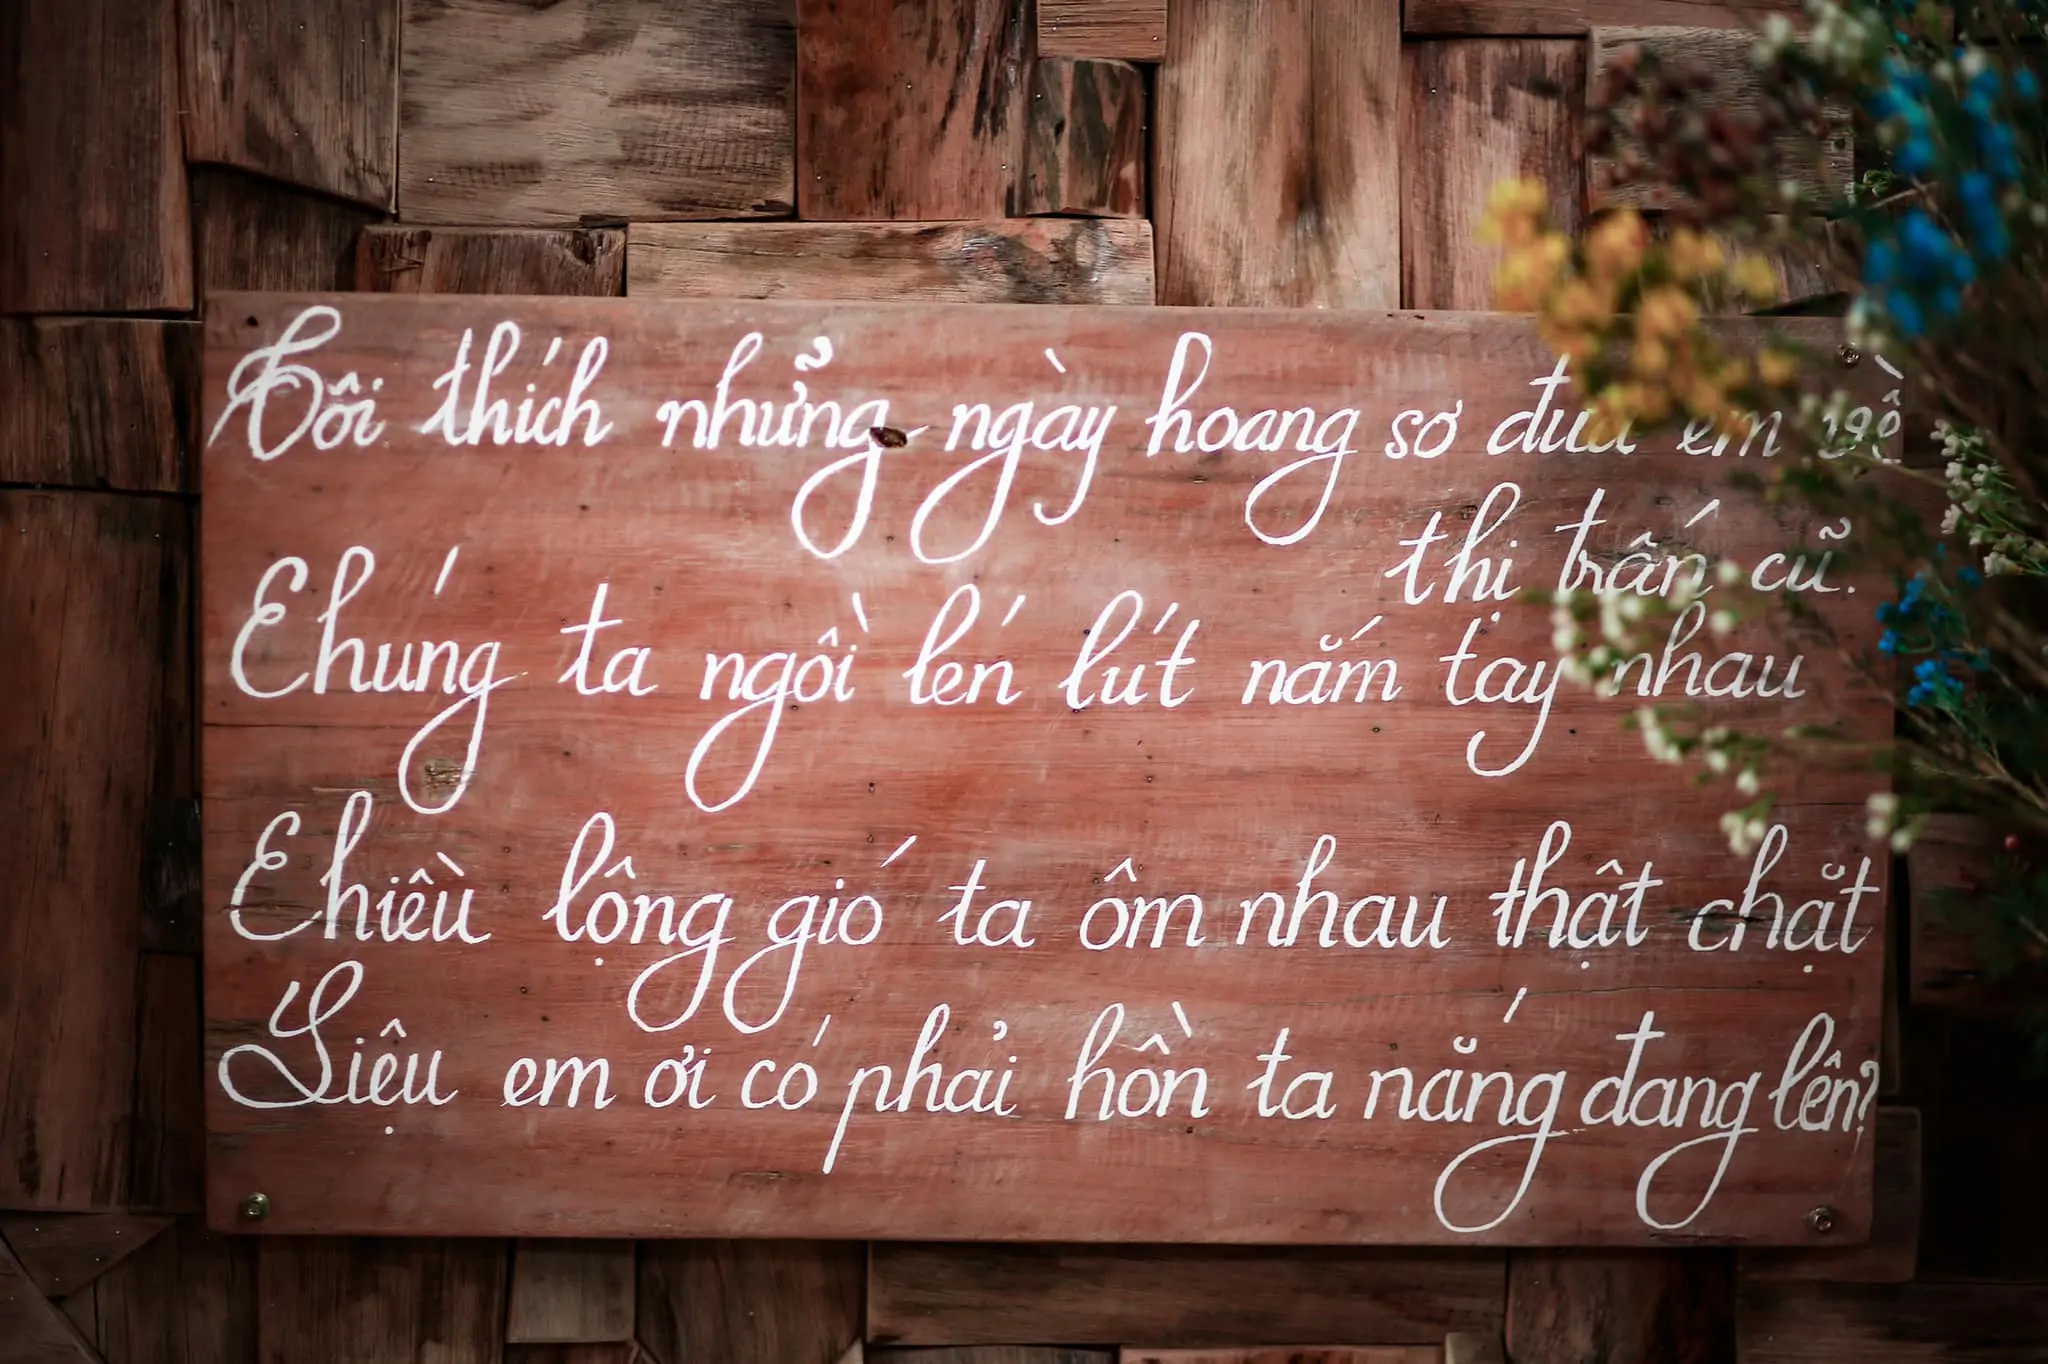 Tôi thích những ngày hoang sơ đưa em về
thị trấn cũ.
Chúng ta ngồi lén lút nắm tay nhau
Chiều lộng gió ta ôm nhau thật chặt
Liệu em ơi có phải hồn ta nắng đang lên?